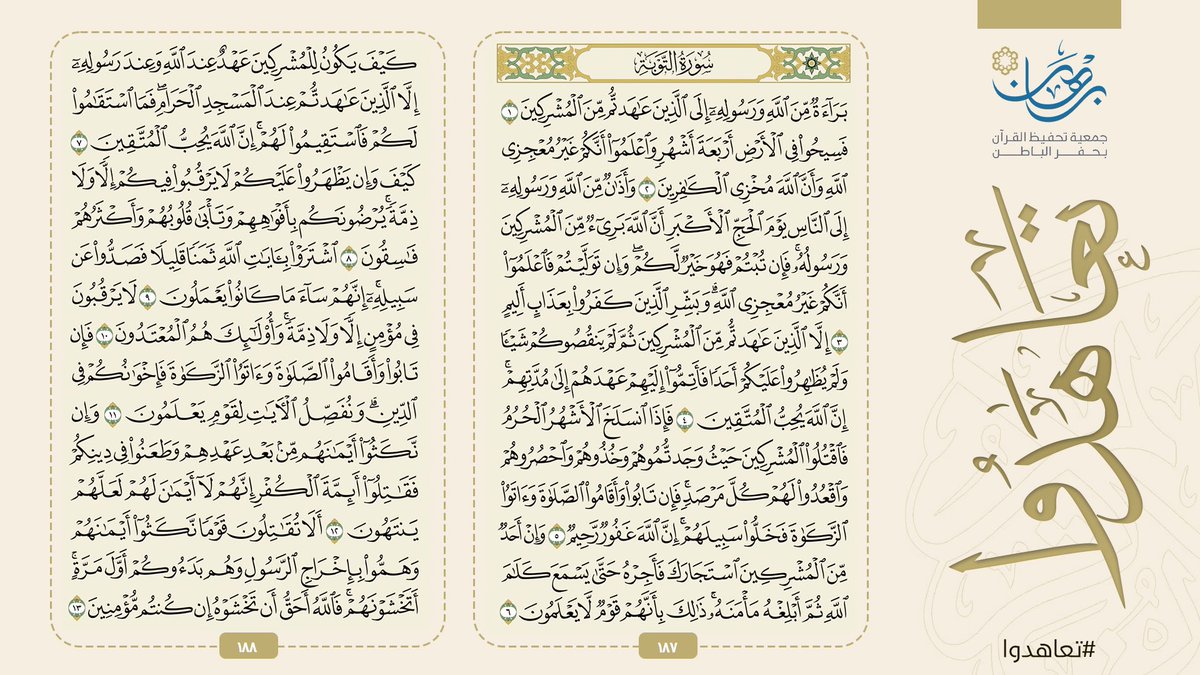 برهان
جمعية تحفيظ القرآن
بحفر الباطن
تعاهدوا
#تعاهدوا
سُورَةُ التَّوۡبَةِ
بَرَآءَةٞ مِّنَ ٱللَّهِ وَرَسُولِهِۦٓ إِلَى ٱلَّذِينَ عَٰهَدتُّم مِّنَ ٱلۡمُشۡرِكِينَ ١
فَسِيحُواْ فِي ٱلۡأَرۡضِ أَرۡبَعَةَ أَشۡهُرٖ وَٱعۡلَمُوٓاْ أَنَّكُمۡ غَيۡرُ مُعۡجِزِي
ٱللَّهِ وَأَنَّ ٱللَّهَ مُخۡزِي ٱلۡكَٰفِرِينَ ٢ وَأَذَٰنٞ مِّنَ ٱللَّهِ وَرَسُولِهِۦٓ
إِلَى ٱلنَّاسِ يَوۡمَ ٱلۡحَجِّ ٱلۡأَكۡبَرِ أَنَّ ٱللَّهَ بَرِيٓءٞ مِّنَ ٱلۡمُشۡرِكِينَ
وَرَسُولُهُۥۚ فَإِن تُبۡتُمۡ فَهُوَ خَيۡرٞ لَّكُمۡۖ وَإِن تَوَلَّيۡتُمۡ فَٱعۡلَمُوٓاْ
أَنَّكُمۡ غَيۡرُ مُعۡجِزِي ٱللَّهِۗ وَبَشِّرِ ٱلَّذِينَ كَفَرُواْ بِعَذَابٍ أَلِيمٍ
٣ إِلَّا ٱلَّذِينَ عَٰهَدتُّم مِّنَ ٱلۡمُشۡرِكِينَ ثُمَّ لَمۡ يَنقُصُوكُمۡ شَيۡـٔٗا
وَلَمۡ يُظَٰهِرُواْ عَلَيۡكُمۡ أَحَدٗا فَأَتِمُّوٓاْ إِلَيۡهِمۡ عَهۡدَهُمۡ إِلَىٰ مُدَّتِهِمۡۚ
إِنَّ ٱللَّهَ يُحِبُّ ٱلۡمُتَّقِينَ ٤ فَإِذَا ٱنسَلَخَ ٱلۡأَشۡهُرُ ٱلۡحُرُمُ
فَٱقۡتُلُواْ ٱلۡمُشۡرِكِينَ حَيۡثُ وَجَدتُّمُوهُمۡ وَخُذُوهُمۡ وَٱحۡصُرُوهُمۡ
وَٱقۡعُدُواْ لَهُمۡ كُلَّ مَرۡصَدٖۚ فَإِن تَابُواْ وَأَقَامُواْ ٱلصَّلَوٰةَ وَءَاتَوُاْ
ٱلزَّكَوٰةَ فَخَلُّواْ سَبِيلَهُمۡۚ إِنَّ ٱللَّهَ غَفُورٞ رَّحِيمٞ ٥ وَإِنۡ أَحَدٞ
مِّنَ ٱلۡمُشۡرِكِينَ ٱسۡتَجَارَكَ فَأَجِرۡهُ حَتَّىٰ يَسۡمَعَ كَلَٰمَ
ٱللَّهِ ثُمَّ أَبۡلِغۡهُ مَأۡمَنَهُۥۚ ذَٰلِكَ بِأَنَّهُمۡ قَوۡمٞ لَّا يَعۡلَمُونَ ٦
١٨٧
كَيۡفَ يَكُونُ لِلۡمُشۡرِكِينَ عَهۡدٌ عِندَ ٱللَّهِ وَعِندَ رَسُولِهِۦٓ
إِلَّا ٱلَّذِينَ عَٰهَدتُّمۡ عِندَ ٱلۡمَسۡجِدِ ٱلۡحَرَامِۖ فَمَا ٱسۡتَقَٰمُواْ
لَكُمۡ فَٱسۡتَقِيمُواْ لَهُمۡۚ إِنَّ ٱللَّهَ يُحِبُّ ٱلۡمُتَّقِينَ ٧
كَيۡفَ وَإِن يَظۡهَرُواْ عَلَيۡكُمۡ لَا يَرۡقُبُواْ فِيكُمۡ إِلّٗا وَلَا
ذِمَّةٗۚ يُرۡضُونَكُم بِأَفۡوَٰهِهِمۡ وَتَأۡبَىٰ قُلُوبُهُمۡ وَأَكۡثَرُهُمۡ
فَٰسِقُونَ ٨ ٱشۡتَرَوۡاْ بِـَٔايَٰتِ ٱللَّهِ ثَمَنٗا قَلِيلٗا فَصَدُّواْ عَن
سَبِيلِهِۦٓۚ إِنَّهُمۡ سَآءَ مَا كَانُواْ يَعۡمَلُونَ ٩ لَا يَرۡقُبُونَ
فِي مُؤۡمِنٍ إِلّٗا وَلَا ذِمَّةٗۚ وَأُوْلَٰٓئِكَ هُمُ ٱلۡمُعۡتَدُونَ ١٠ فَإِن
تَابُواْ وَأَقَامُواْ ٱلصَّلَوٰةَ وَءَاتَوُاْ ٱلزَّكَوٰةَ فَإِخۡوَٰنُكُمۡ فِي
ٱلدِّينِۗ وَنُفَصِّلُ ٱلۡأٓيَٰتِ لِقَوۡمٖ يَعۡلَمُونَ ١١ وَإِن
نَّكَثُوٓاْ أَيۡمَٰنَهُم مِّنۢ بَعۡدِ عَهۡدِهِمۡ وَطَعَنُواْ فِي دِينِكُمۡ
فَقَٰتِلُوٓاْ أَئِمَّةَ ٱلۡكُفۡرِ إِنَّهُمۡ لَآ أَيۡمَٰنَ لَهُمۡ لَعَلَّهُمۡ
يَنتَهُونَ ١٢ أَلَا تُقَٰتِلُونَ قَوۡمٗا نَّكَثُوٓاْ أَيۡمَٰنَهُمۡ
وَهَمُّواْ بِإِخۡرَاجِ ٱلرَّسُولِ وَهُم بَدَءُوكُمۡ أَوَّلَ مَرَّةٍۚ
أَتَخۡشَوۡنَهُمۡۚ فَٱللَّهُ أَحَقُّ أَن تَخۡشَوۡهُ إِن كُنتُم مُّؤۡمِنِينَ ١٣
١٨٨